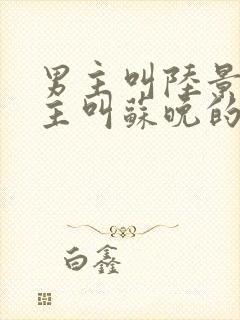 男主叫陸景
主叫蘇晚的
白鑫